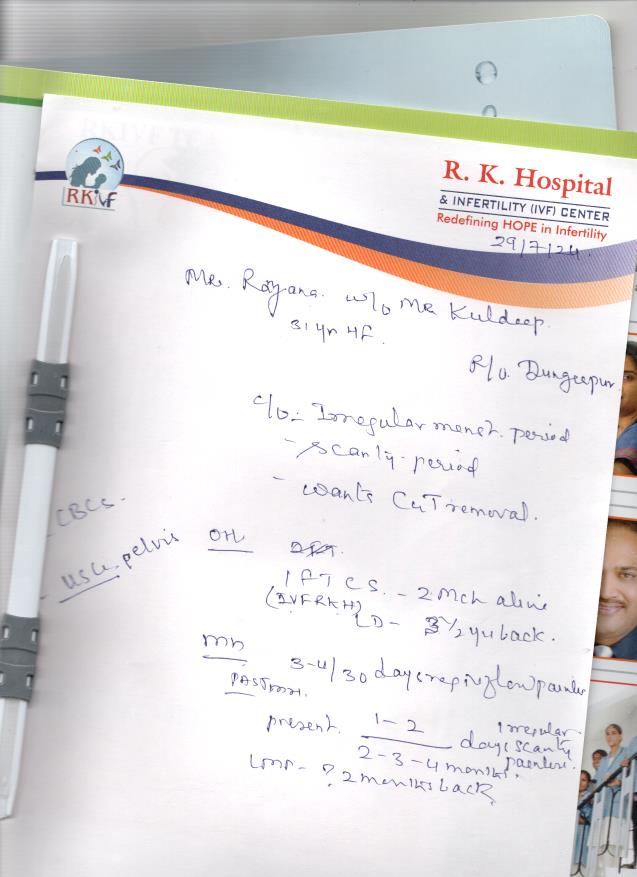 RKivf
R. K. Hospital
& INFERTILITY (IVF) CENTER
Redefining HOPE in Infertility
29/7/24.
Mrs. Rayana. w/o Mr Kuldeep.
31 yr HF.
R/o. Dungerpur
c/o:- Irregular menst. period
- scanty. period
- wants CuT removal.
- CBCs.
- USG. pelvis
OH
1 FTCS. - 2 Mch alive
(IVF RKH)
LD - 3 1/2 yr back.
MH
3-4/30 days reg
painless
PAST MH.
present. 1-2 / 2-3-4 months. days irregular scanty painless.
LMP - ? 2 months back